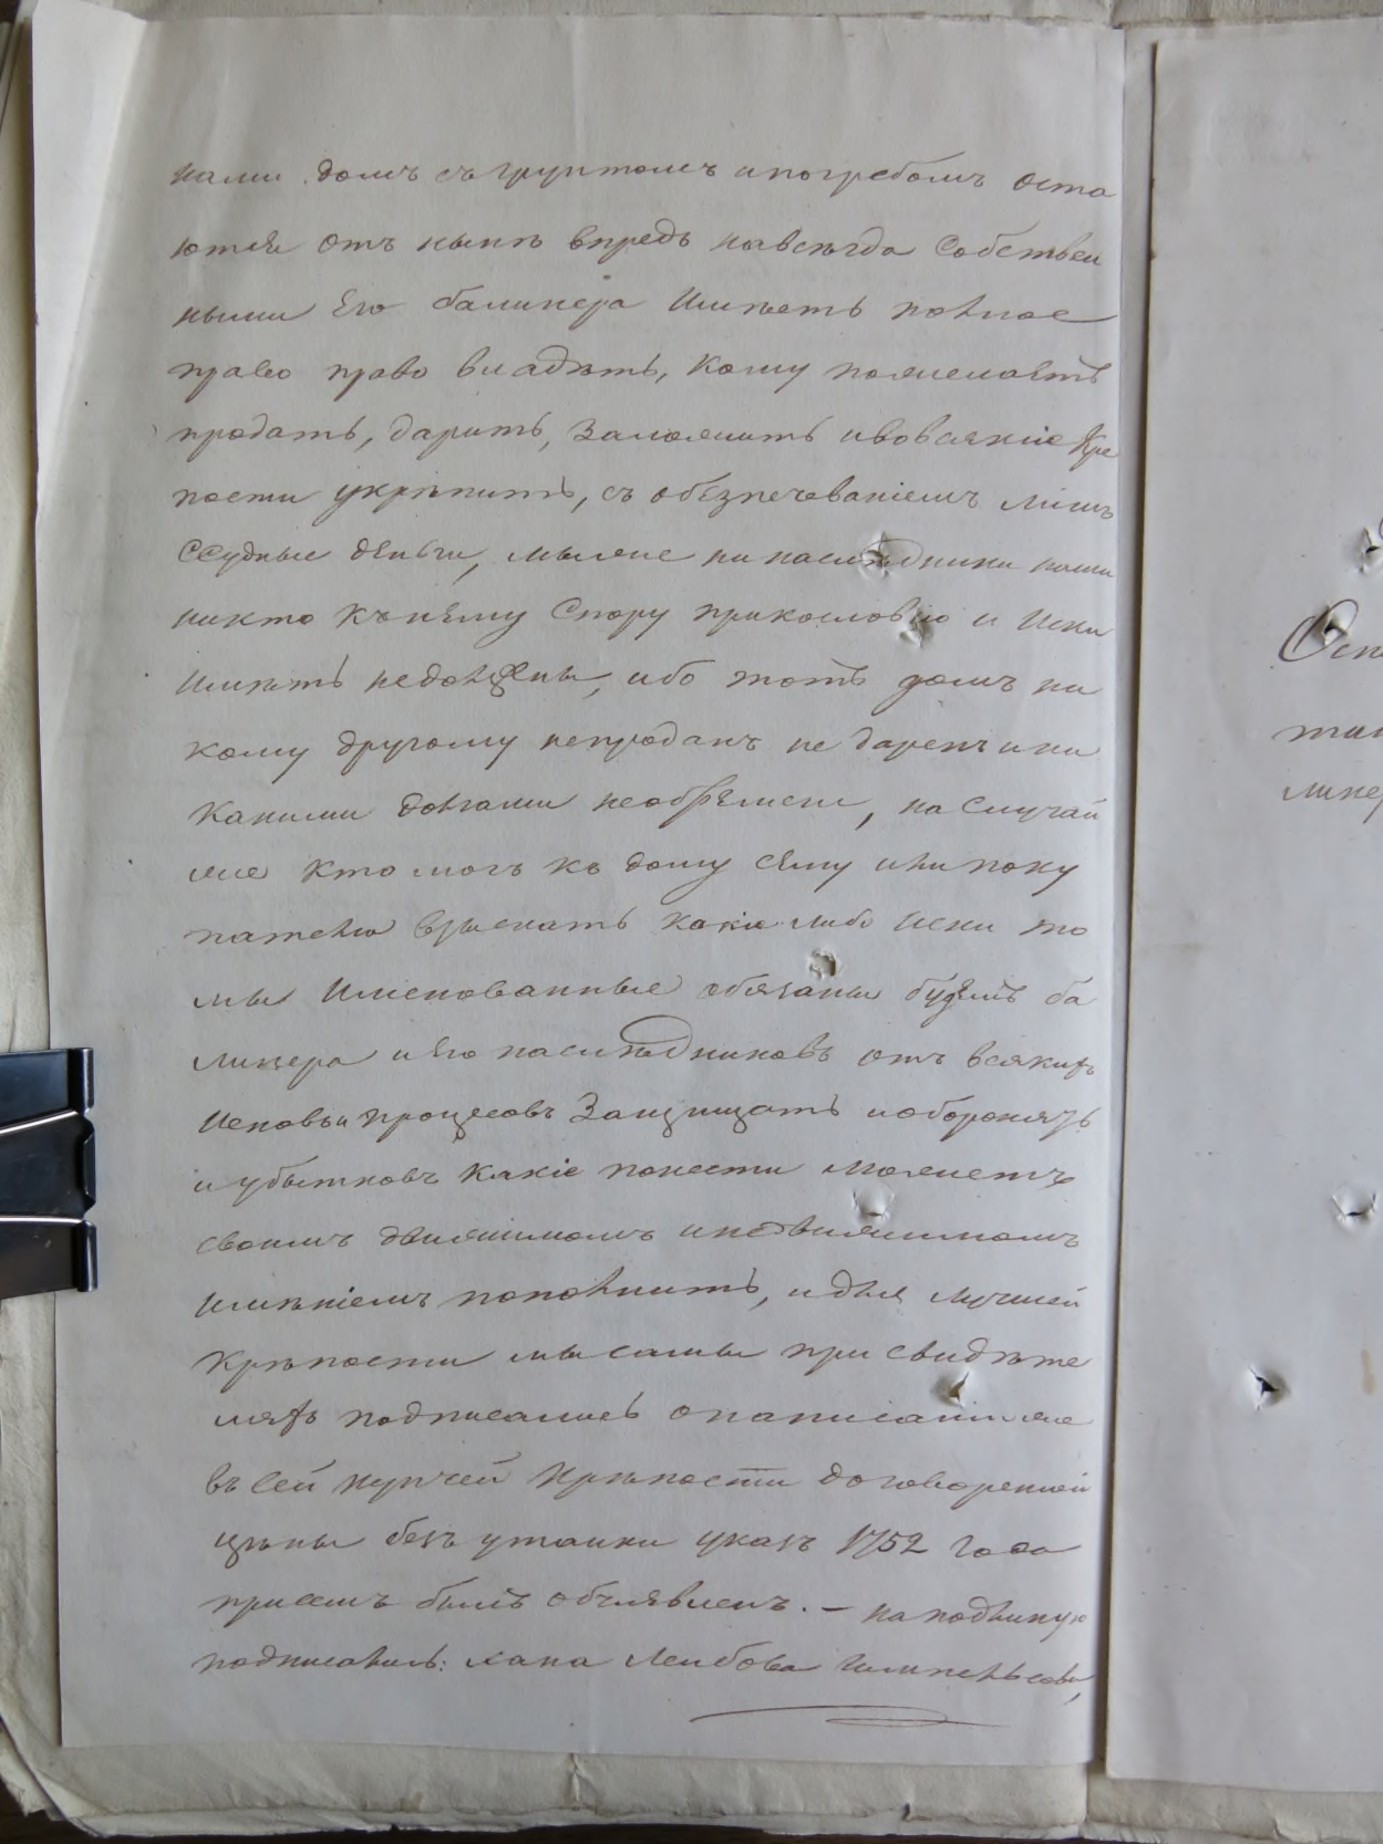 нами домъ съ грунтомъ и погребомъ оста
ются отъ нынѣ впредь навсѣгда Собствен
ными Его балинера Имѣетъ полное
право право владѣть, кому пожелаетъ
продать, дарить, заложить ивовсякіе Кре
пости укрѣпить, съ обезпечеваніемъ лишь
ССудные деньги, мыже ни наслѣдники наши
никто къ нему Спору прикословію и Иски
Имѣть недолжены, ибо тотъ домъ ни
кому другому непроданъ не даренъ и ни
Какими долгами необремени, на Случай
же кто могъ къ дому сему или поку
пателю взыскать какіе либо Иски то
мы Именованные обязаны будемъ ба
линера и Его наслѣдниковъ отъ всякихъ
Исковъ и процесовъ Защищать и оборонять
и убытковъ какіе понести можетъ
своимъ движимомъ и недвижимомъ
имѣніемъ пополнить, и для лучшей
Крѣпости мы самы при свидѣте
ляхъ подписались о написаніи же
въ Сей купчей Крѣпости договоренной
цѣны безъ утаики указъ 1752 Года
при семъ былъ объявленъ. – на подлиную
подписались: хана Лейбова Гимпельсова,
Осп